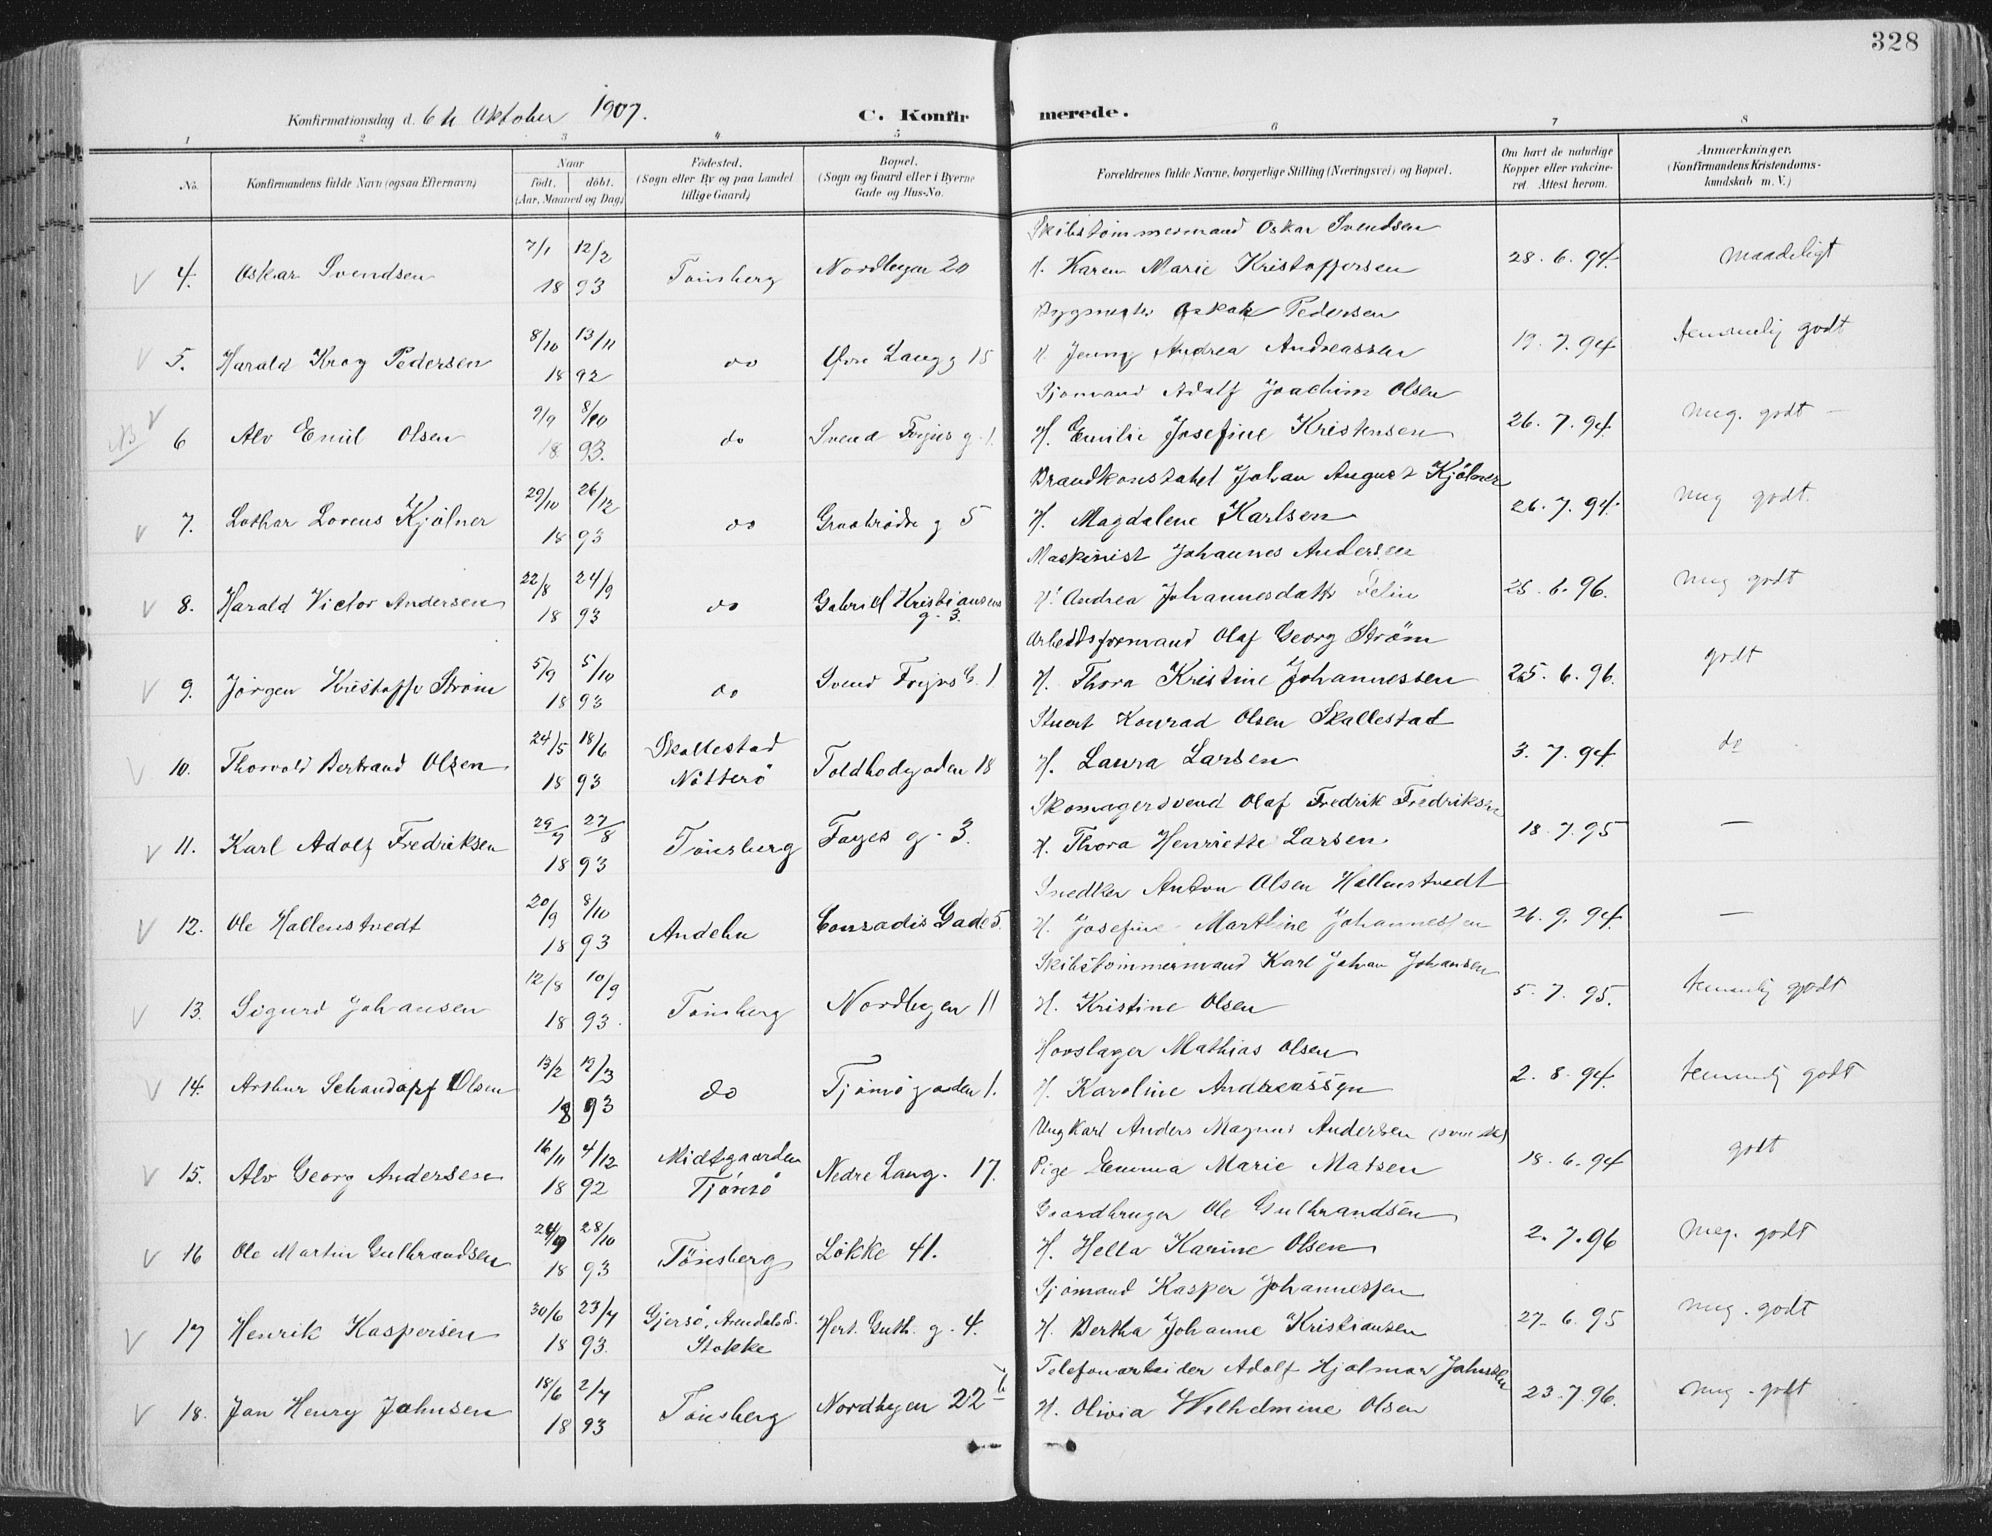 328
Konfirmationsdag d. 6te Oktober 1907.
C. Konfirmerede.
1 2 3 4 5 6 7 8
No. Konfirmandens fulde Navn (ogsaa Efternavn)
Naar
födt. döbt.
(Aar, Maaned og Dag)
Födested.
(Sogn eller By og paa Landet
tillige Gaard)
Bopæl.
(Sogn og Gaard eller i Byerne
Gade og Hus-No.
Forældrenes fulde Navne, borgerlige Stilling (Næringsvei) og Bopæl.
Om havt de naturlige
Kopper eller vakcine-
ret Attest herom.
Anmærkninger.
(Konfirmandens Kristendoms-
kundskab m. V.)
7/1 12/2 Skibstømmermand Oskar Svendsen
4. Oskar Svendsen 18 93 Tönsberg Nordbyen 20 H. Karen Marie Kristoffersen 28. 6. 94. maadeligt
8/10 13/11 Bygmester Oskar Pedersen
5. Harald Krog Pedersen 18 92 do Øvre Langg 15 H. Jenny Andrea Andreassen 19. 7. 94 temmelig godt
9/9 8/10 Sjömand Adolf Joachim Olsen
NB 6 Alv Emil Olsen 18 93. do Svend Foyns g. 1. H. Emilie Josefine Kristensen 26. 7. 94. meg. godt
29/10 26/12 Brandkonstabel Johan August Kjölner
7. Lothar Lorens Kjölner 18 93 do Graabrødre g 5 H. Magdalene Karlsen 26. 7. 94. meg godt.
22/8 24/9 Maskinist Johannes Andersen
8. Harald Victor Andersen 18 93 do Gabriel Kristiansens g. 3. H. Andrea Johannesdatter 25. 6. 96. meg godt
5/9 5/10 Arbeidsformand Olaf Georg Strøm
9. Jørgen Kristoffer Strøm 18 93 do Svend Foyns G. 1 H. Thora Kristine Johannessen 25. 6. 96. godt
24/5 18/6 Stuert Konrad Olsen Skallestad
10. Thorvald Bertrand Olsen 18 93 Skallestad Nötterö Toldbodgaden 18 H. Laura Larsen 3. 7. 94. do
29/7 27/8 Skomagersvend Olaf Fredrik Fredriksen
11. Karl Adolf Fredriksen 18 93 Tönsberg Fayes g. 3. H. Thora Henriette Larsen 18. 7. 95 —
20/9 8/10 Snedker Anton Olsen Hallenstvedt
12. Ole Hallenstvedt 18 93 Andebu Conradis Gade 5. H. Josefine Mathine Johannessen 26. 9. 94. —
12/8 10/9 Skibstømmermand Karl Johan Johansen
13. Sigurd Johansen 18 93. Tönsberg Nordbyen 11 H. Kristine Olsen 5. 7. 95. temmelig godt
13/2 12/3 Hovslager Mathias Olsen
14. Arthur Schandorf Olsen 18 93 do Tjömögaden 1. H. Karoline Andreassen 2. 8. 94. temmelig godt
16/11 4/12 Ungkarl Anders Magnus Andersen
15. Alv Georg Andersen 18 92 Midtgaarden Tjömö Nedre Lang. 17. Pige Emma Marie Matsen 18. 6. 94 godt
24/9 28/10 Gaardbruger Ole Gulbrandsen
16 Ole Martin Gulbrandsen 18 93 Tönsberg Lökke 41. H. Hella Karine Olsen 2. 7. 96 meg. godt
30/6 23/7 Sjömand Kasper Johannessen
17 Henrik Kaspersen 18 93. Gjersö, Arendalsd. Stokke Hert. Guth. g. 4. H. Bertha Johanne Kristiansen 27. 6. 95 meg. godt
18/6 2/7 Telefonarbeider Adolf Hjalmar Jahnsen
18. Jan Henry Jahnsen 18 93 Tönsberg Nordbyen 22 b H. Olivia Wilhelmine Olsen 23. 7. 96. meg. godt